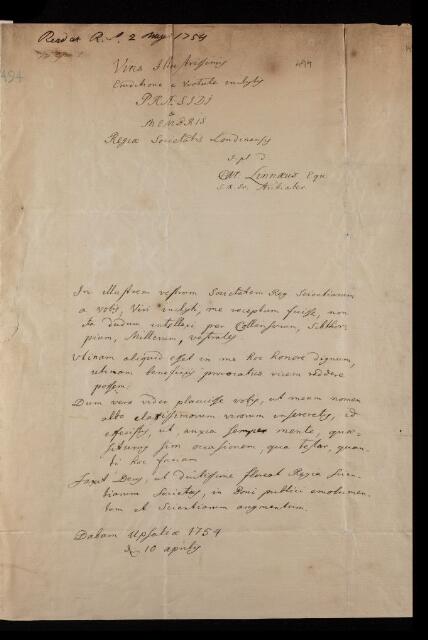 Read at R. S. 2 May 1754
494
499
Viris Illustrissimis
Eruditione & virtute inclytis
PRÆSIDI
&
MEMBRIS
Regiæ Societatis Londinensis
s. pl. d
Car. Linnæus Equ
Archiater.
In illustrem vestram Societatem Reg Scientiarum
a vobis, Viri inclyti, me receptum fuisse, non
ita dudum intellexi per Collinsonum, Sibthor-
pium, Millerum, vestrates
Utinam aliquid esset in me hoc honore dignum,
utinam beneficiis provocatus vicem reddere
possem:
Dum vero video placuisse vobis, ut meum nomen
albo clarissimorum virorum insereretis, id
effecistis, ut anxia semper mente, quæ-
siturus sim occasionem, qua tester, quan-
ti hoc faciam
Faxit Deus, ut diutissime floreat Regia Scien-
tiarum Societas, in boni publici emolumen-
tum et Scientiarum augmentum.
Dabam Upsaliæ 1754
d. 10 aprilis